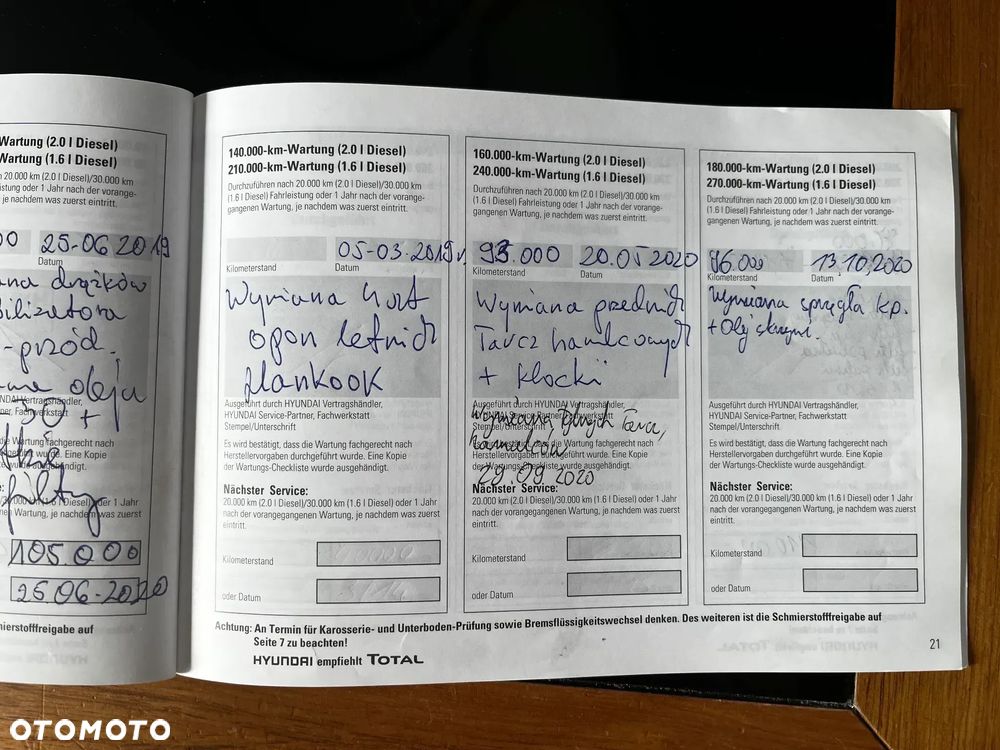 Wartung (2.0 l Diesel)
Wartung (1.6 l Diesel)
20.000 km (2.0 l Diesel)/30.000 km
leistung oder 1 Jahr nach der vorange-
je nachdem was zuerst eintritt.
00 25-06 2019
Datum
ana drążków
- przód.
oleju
NDAI Vertragshändler,
ner, Fachwerkstatt
+
die Wartung fachgerecht nach
durchgeführt wurde. Eine Kopie
wurde ausgehändigt.
filtry
/30.000 km (1.6 l Diesel) oder 1 Jahr
Wartung, je nachdem was zuerst
105.000
26.06-2020
mierstofffreigabe auf
140.000-km-Wartung (2.0 l Diesel)
210.000-km-Wartung (1.6 l Diesel)
Durchzuführen nach 20.000 km (2.0 l Diesel)/30.000 km
(1.6 l Diesel) Fahrleistung oder 1 Jahr nach der vorange-
gangenen Wartung, je nachdem was zuerst eintritt.
05-03.2019r,
Kilometerstand Datum
Wymiana 4 szt
opon letnich
Hankook
Ausgeführt durch HYUNDAI Vertragshändler,
HYUNDAI Service-Partner, Fachwerkstatt
Stempel/Unterschrift
Es wird bestätigt, dass die Wartung fachgerecht nach
Herstellervorgaben durchgeführt wurde. Eine Kopie
der Wartungs-Checkliste wurde ausgehändigt.
Nächster Service:
20.000 km (2.0 l Diesel)/30.000 km (1.6 l Diesel) oder 1 Jahr
nach der vorangegangenen Wartung, je nachdem was zuerst
eintritt.
Kilometerstand
oder Datum
160.000-km-Wartung (2.0 l Diesel)
240.000-km-Wartung (1.6 l Diesel)
Durchzuführen nach 20.000 km (2.0 l Diesel)/30.000 km
(1.6 l Diesel) Fahrleistung oder 1 Jahr nach der vorange-
gangenen Wartung, je nachdem was zuerst eintritt.
93.000 20.05 2020
Kilometerstand Datum
Wymiana przednich
Tarcz hamulcowych
+ klocki
Ausgeführt durch HYUNDAI Vertragshändler,
HYUNDAI Service-Partner, Fachwerkstatt
Stempel/Unterschrift
Wymiana tylnych Tarcz
hamulcow
Es wird bestätigt, dass die Wartung fachgerecht nach
Herstellervorgaben durchgeführt wurde. Eine Kopie
der Wartungs-Checkliste wurde ausgehändigt.
29.09.2020
Nächster Service:
20.000 km (2.0 l Diesel)/30.000 km (1.6 l Diesel) oder 1 Jahr
nach der vorangegangenen Wartung, je nachdem was zuerst
eintritt.
Kilometerstand
oder Datum
180.000-km-Wartung (2.0 l Diesel)
270.000-km-Wartung (1.6 l Diesel)
Durchzuführen nach 20.000 km (2.0 l Diesel)/30.000 km
(1.6 l Diesel) Fahrleistung oder 1 Jahr nach der vorange-
gangenen Wartung, je nachdem was zuerst eintritt.
13.10.2020
Kilometerstand Datum
Wymiana sprzęgła kp.
+ Olej skrzyni.
Ausgeführt durch HYUNDAI Vertragshändler,
HYUNDAI Service-Partner, Fachwerkstatt
Stempel/Unterschrift
Es wird bestätigt, dass die Wartung fachgerecht nach
Herstellervorgaben durchgeführt wurde. Eine Kopie
der Wartungs-Checkliste wurde ausgehändigt.
Nächster Service:
20.000 km (2.0 l Diesel)/30.000 km (1.6 l Diesel) oder 1 Jahr
nach der vorangegangenen Wartung, je nachdem was zuerst
eintritt.
Kilometerstand
oder Datum
Achtung: An Termin für Karosserie- und Unterboden-Prüfung sowie Bremsflüssigkeitswechsel denken. Des weiteren ist die Schmierstofffreigabe auf
Seite 7 zu beachten!
HYUNDAI empfiehlt TOTAL
21
OTOMOTO